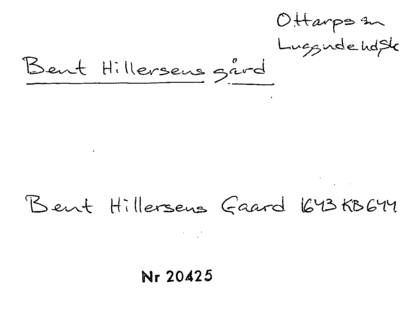 Ottarps sn
Luggude hd, Sk
Bent Hillersens gård
Bent Hillersens Gaard 1643 KB 644
Nr 20425